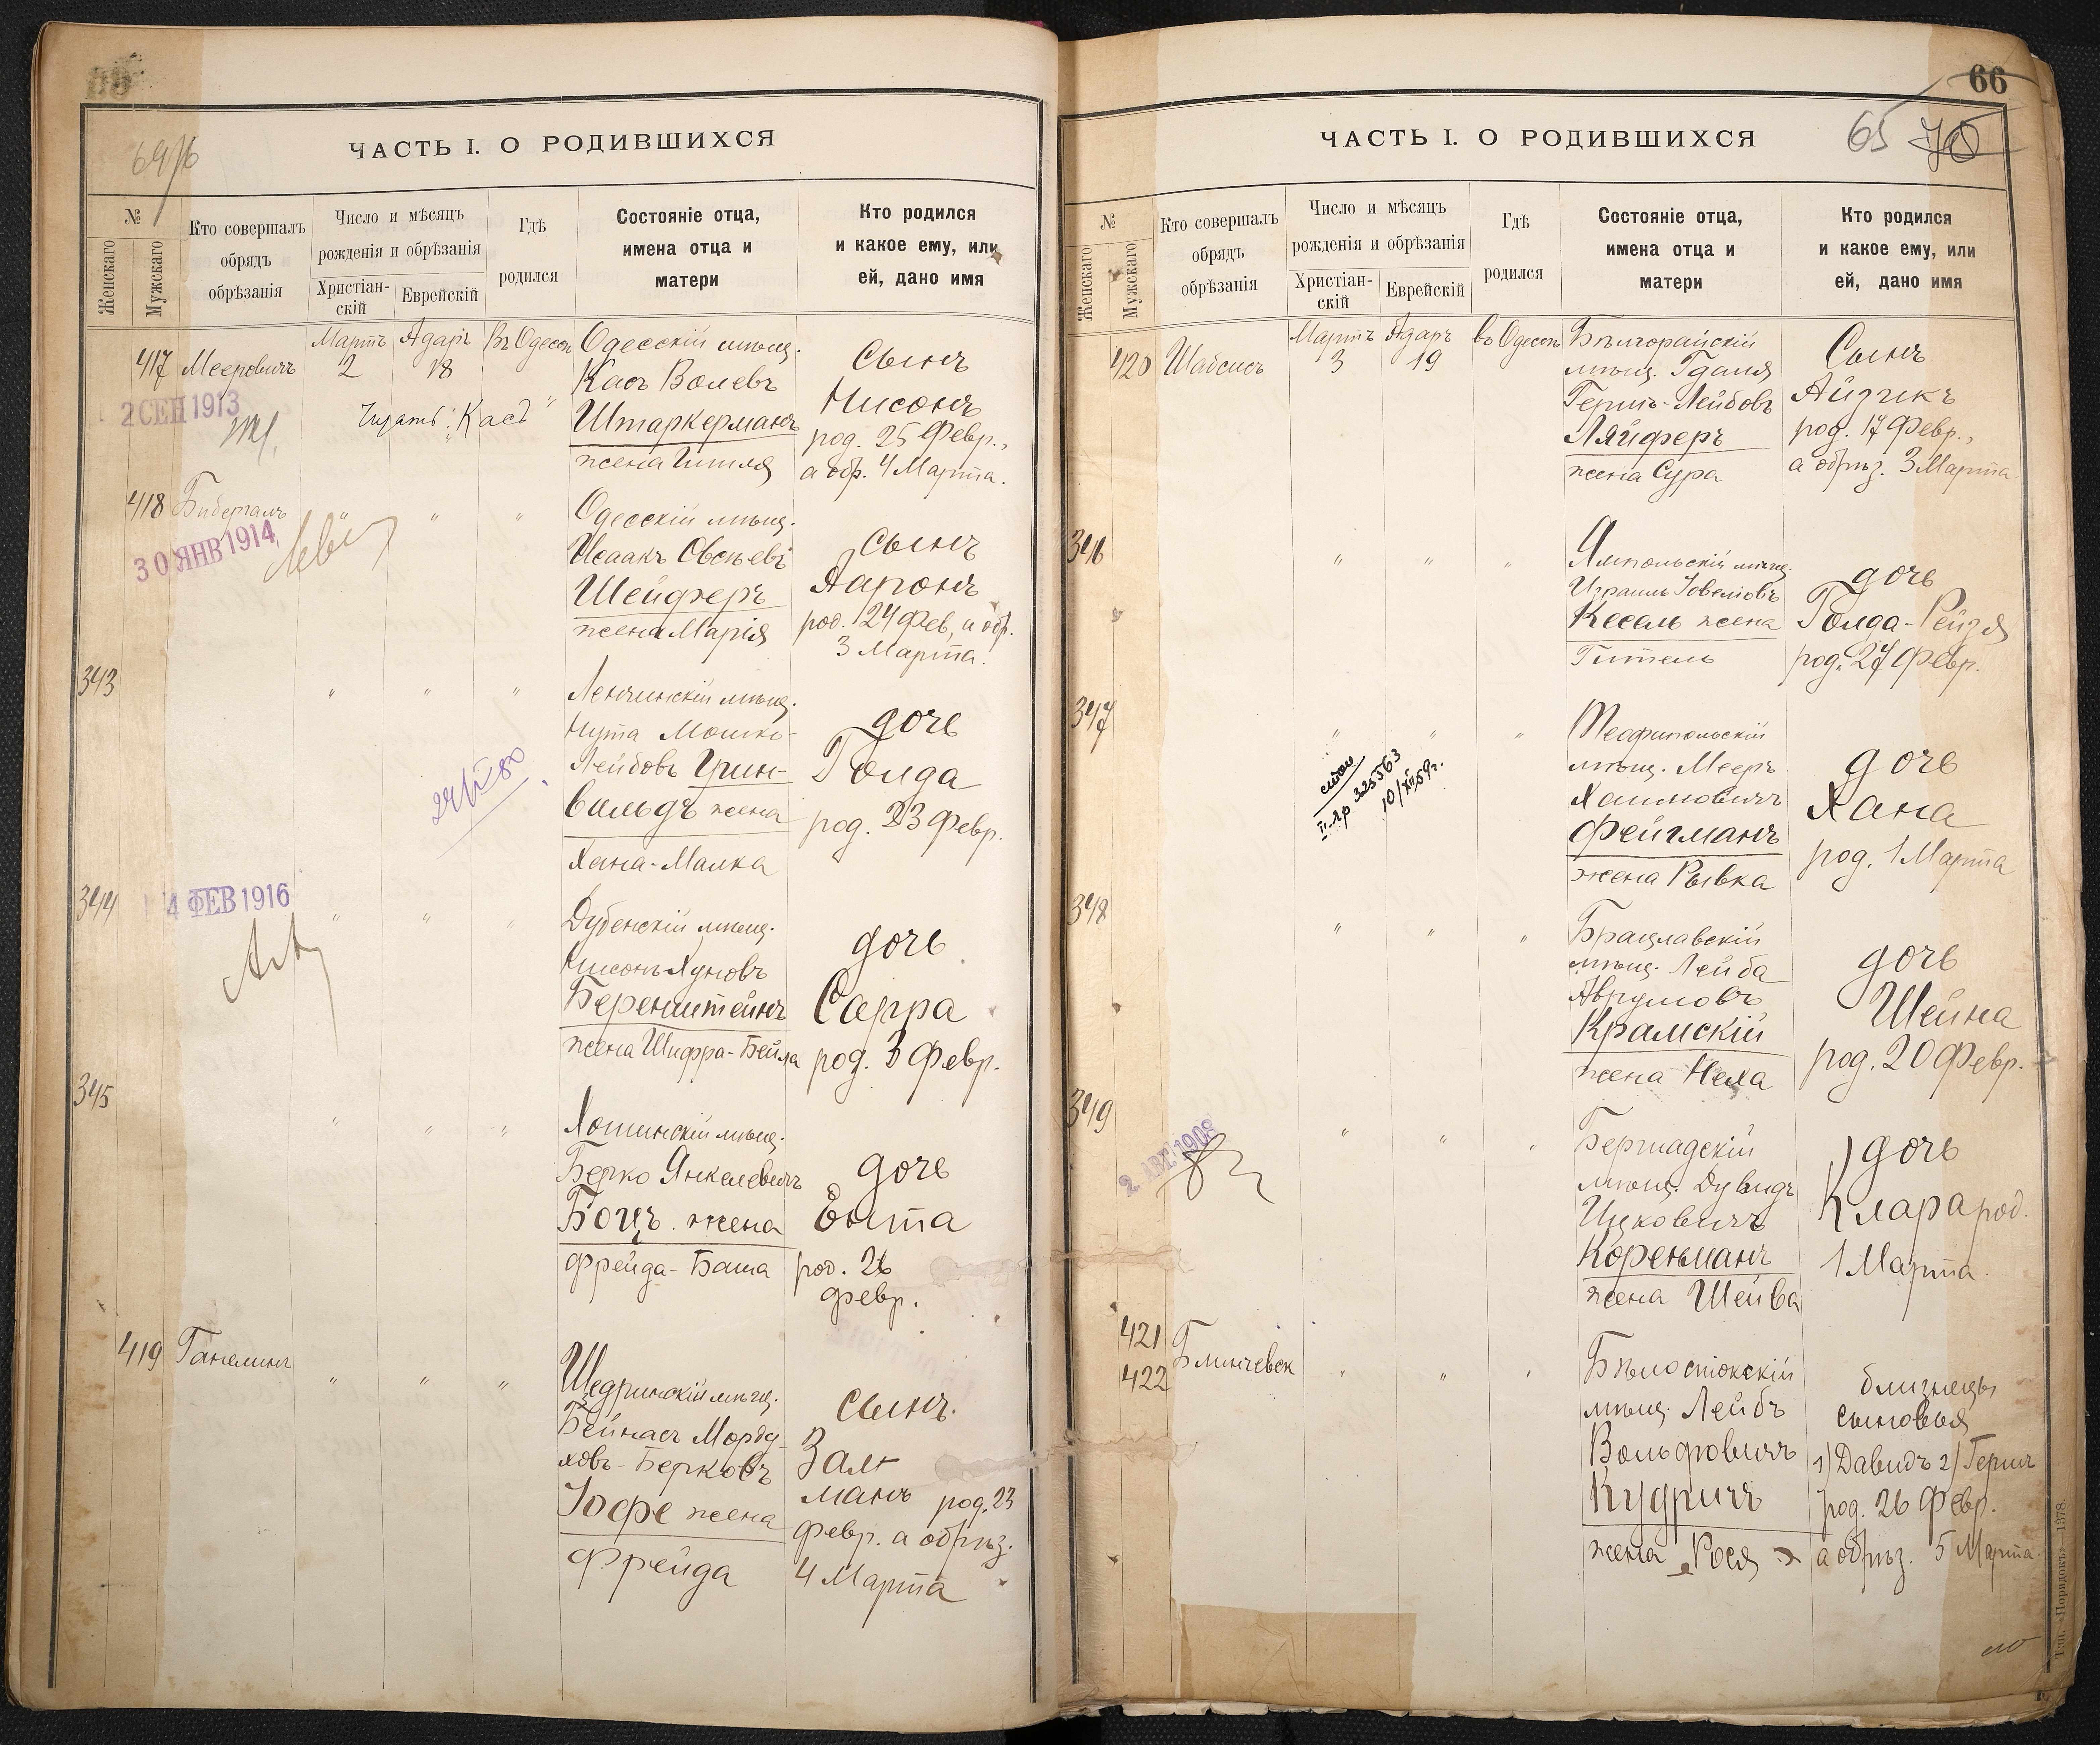 ЧАСТЬ I. О РОДИВШИХСЯ
№
Женскаго
Мужскаго
Кто совершалъ
обрядъ
обрѣзанія
Число и мѣсяцъ
рожденія и обрѣзанія
Христіан-
скій
Еврейскій
Гдѣ
родился
Состояніе отца,
имена отца и
матери
Кто родился
и какое ему, или
ей, дано имя
417 Мееровичъ
Мартъ 2
Адаръ 18
Въ Одессѣ
Одесскій мѣщ.
Касъ Волевъ
Штаркерманъ
жена Гитля
Сынъ
Нисонъ
род. 25 Февр.,
а обр. 4 Марта.
2 СЕН 1913
Читать: "Касъ"
418 Бибергалъ
" " "
Одесскій мѣщ.
Исаакъ Овсѣевъ
Шейферъ
жена Марія
Сынъ
Ааронъ
род. 24 Фев, а обр.
3 Марта.
30 ЯНВ 1914
343
" " "
Ленчинскій мѣщ.
Нута Мошко-
Лейбовъ Грин-
вальдъ жена
Хана-Малка
дочь
Голда
род. 23 Февр.
344
4 ФЕВ 1916
" " "
Дубенскій мѣщ.
Нисонъ Хуновъ
Беренштейнъ
жена Шифра-Бейла
дочь
Сарра
род. 3 Февр.
345
" " "
Хотинскій мѣщ.
Берко Янкелевичъ
Боцъ жена
Фрейда-Баша
дочь
Ента
род. 26
февр.
419 Ганелинъ
" " "
Щедринскій мѣщ.
Бейнасъ Морду-
ховъ-Берковъ
Іофе жена
Фрейда
сынъ.
Зал-
манъ род. 23
февр. а обрѣз.
4 Марта
66
65
ЧАСТЬ I. О РОДИВШИХСЯ
№
Женскаго
Мужскаго
Кто совершалъ
обрядъ
обрѣзанія
Число и мѣсяцъ
рожденія и обрѣзанія
Христіан-
скій
Еврейскій
Гдѣ
родился
Состояніе отца,
имена отца и
матери
Кто родился
и какое ему, или
ей, дано имя
420 Шабсисъ
Мартъ 3
Адаръ 19
въ Одессѣ
Бѣлгорайскій
мѣщ. Гдаля
Гершъ-Лейбовъ
Ляйферъ
жена Сура
Сынъ
Айзикъ
род. 17 Февр.,
а обрѣз. 3 Марта
346
" " "
Ямпольскій мѣщ.
Израиль Іовеліовъ
Кесель жена
Гитель
дочь
Голда-Рейзя
род. 27 Февр.
347
" " "
Теофипольскій
мѣщ. Мееръ
Хаимовичъ
Фейгманъ
жена Рывка
дочь
Хана
род. 1 Марта
II Яр 325563
10/XII 59 г.
348
" " "
Брацлавскій
мѣщ. Лейба
Аврумовъ
Крамскій
жена Неха
дочь
Шейна
род. 20 Февр.
349
2 АВГ 1908
" " "
Бершадскій
мѣщ. Дувидъ
Ицковичъ
Коренманъ
жена Шейва
дочь
Клара род.
1 Марта.
421
422
Блинчевск
" " "
Бѣлостокскій
мѣщ. Лейбъ
Вольфовичъ
Кудричъ
жена Рося
близнецы
сыновья
1) Давидъ 2) Герш
род. 26 Февр.
а обрѣз. 5 Марта.
Тип. «Порядокъ» 1378.